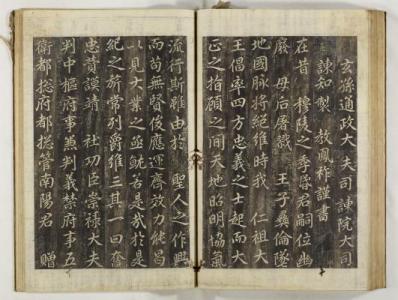 玄孫通政大夫司諫院大司
諫知製 教鳳祚謹書
在昔 穆陵之季昏君嗣位幽
廢 母后屠戮 王子彝倫墜
地國脉將絕維時我 仁祖大
王倡率四方忠義之士起而大
正之指顧之間天地昭明協氣
流行斯雖由於 聖人之作興
而苟無賢俊應運齊效力能曷
以見大業之亟就若是哉於是
紀之旂常列爵維三其一曰奮
忠贊謨靖 社功臣崇祿大夫
判中樞府事兼判義禁府事五
衛都摠府都摠管南陽君 贈